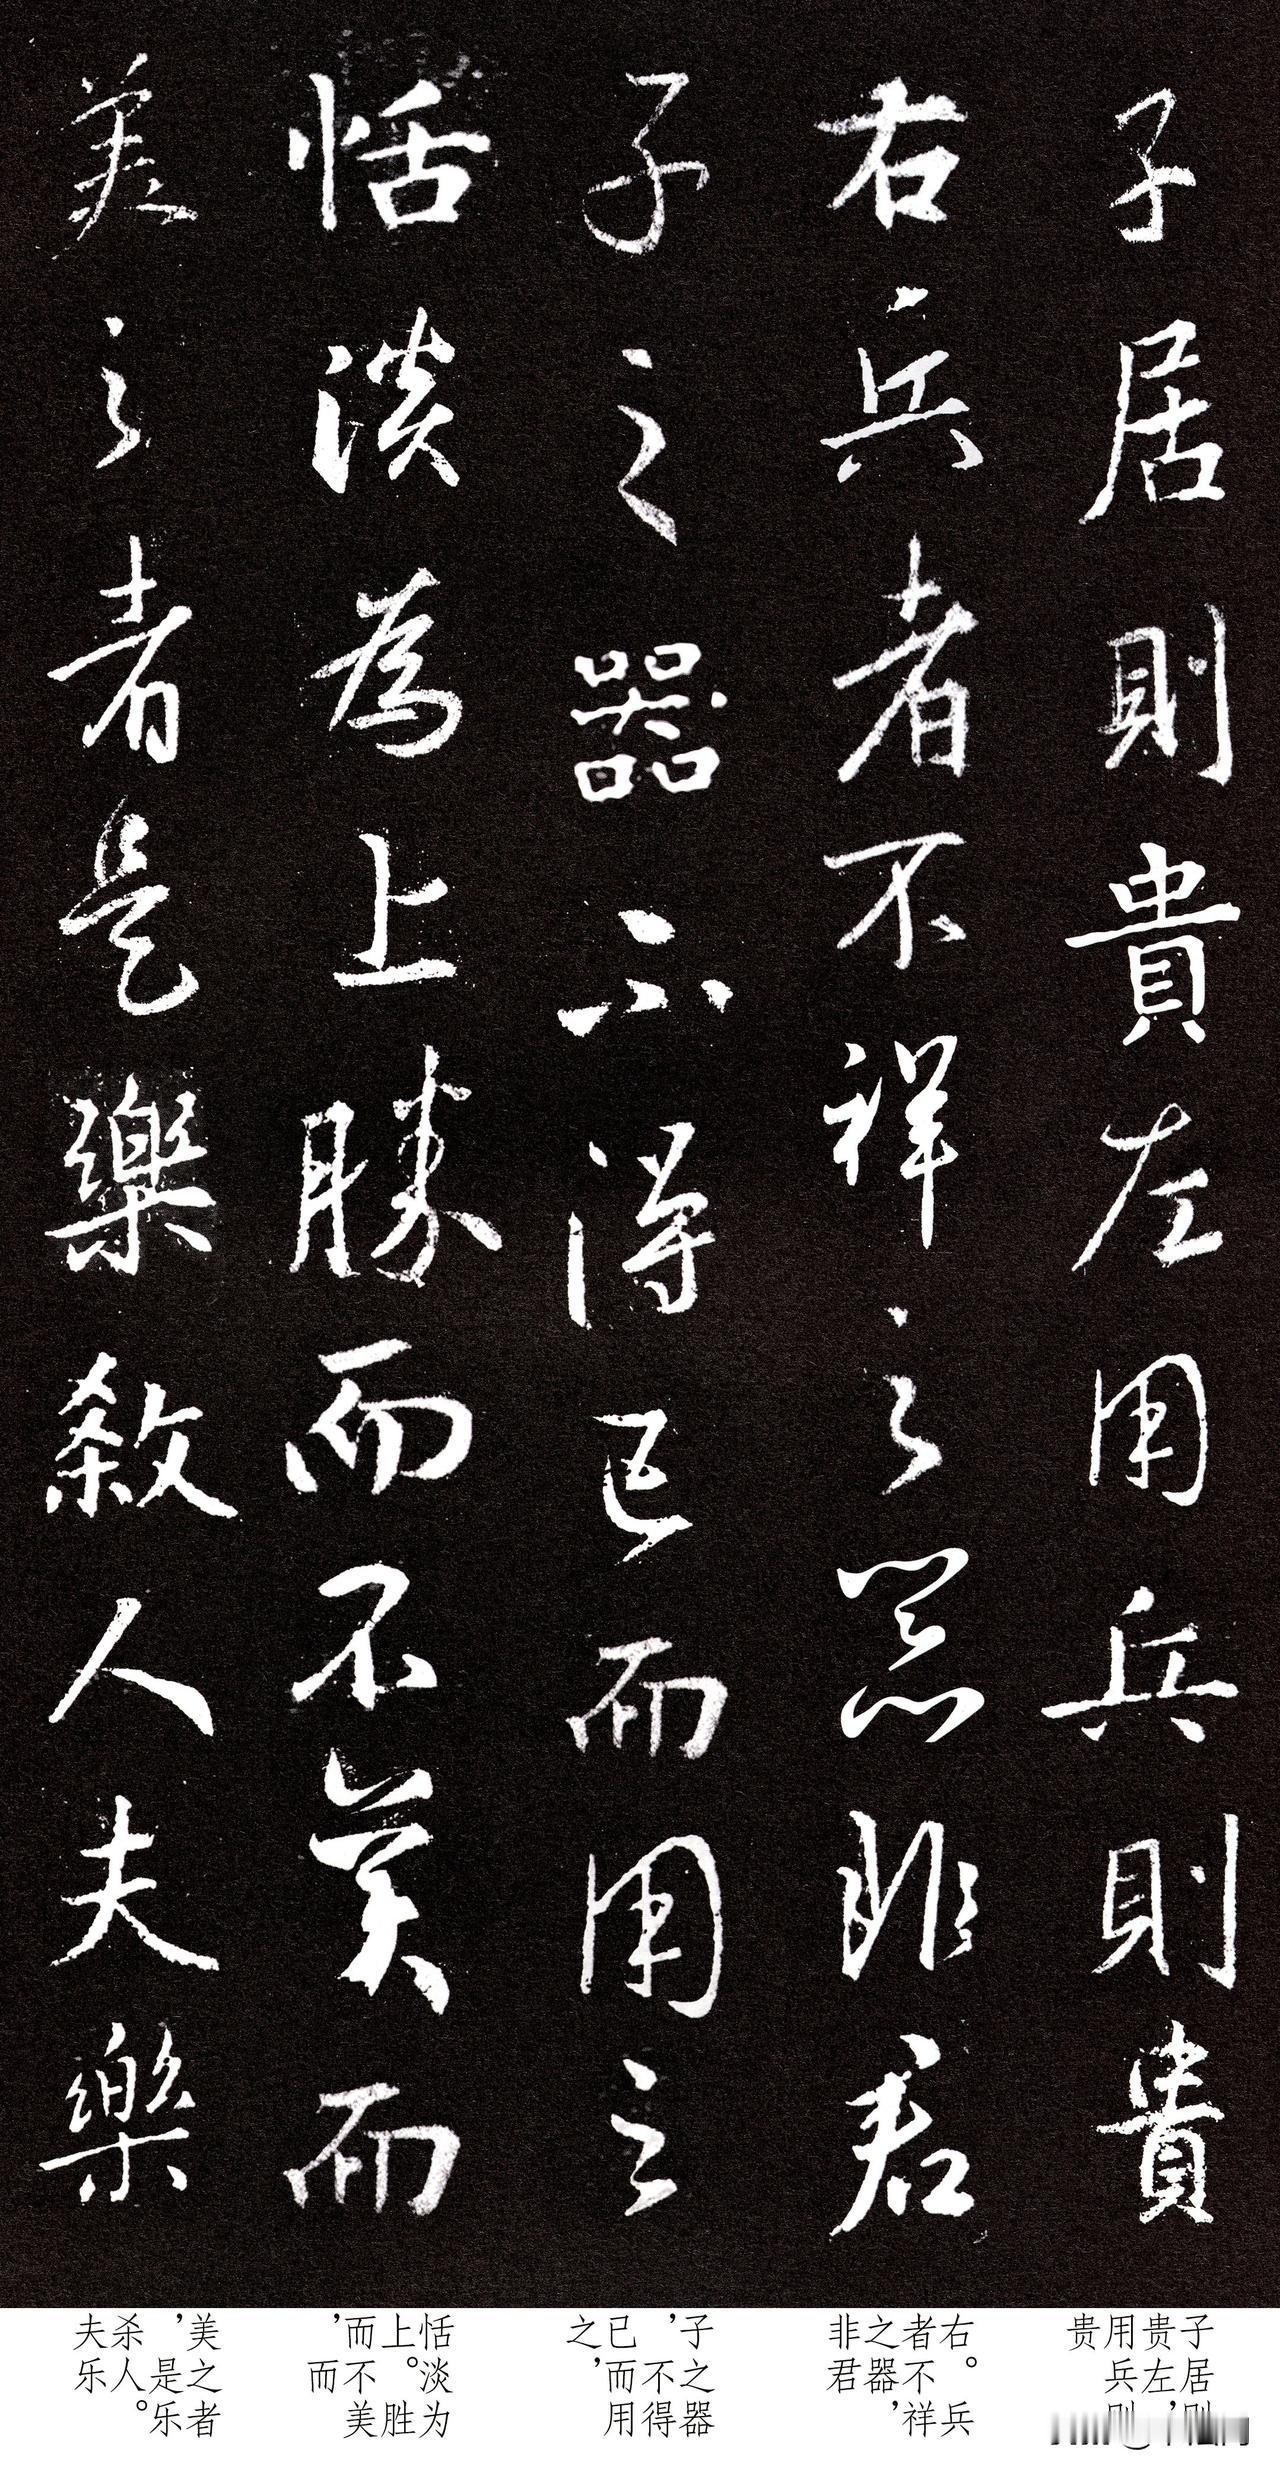 子居則貴左用兵則貴
右兵者不祥之器非君
子之器不得已而用之
恬淡為上勝而不美而
美之者是樂殺人夫樂
子居则
贵左，
用兵则
贵
右。兵
者不祥
之器，
非君
子之器
，不得
已而用
之，
恬淡为
上。胜
而不美
，而
美之者
，是乐
杀人。
夫乐